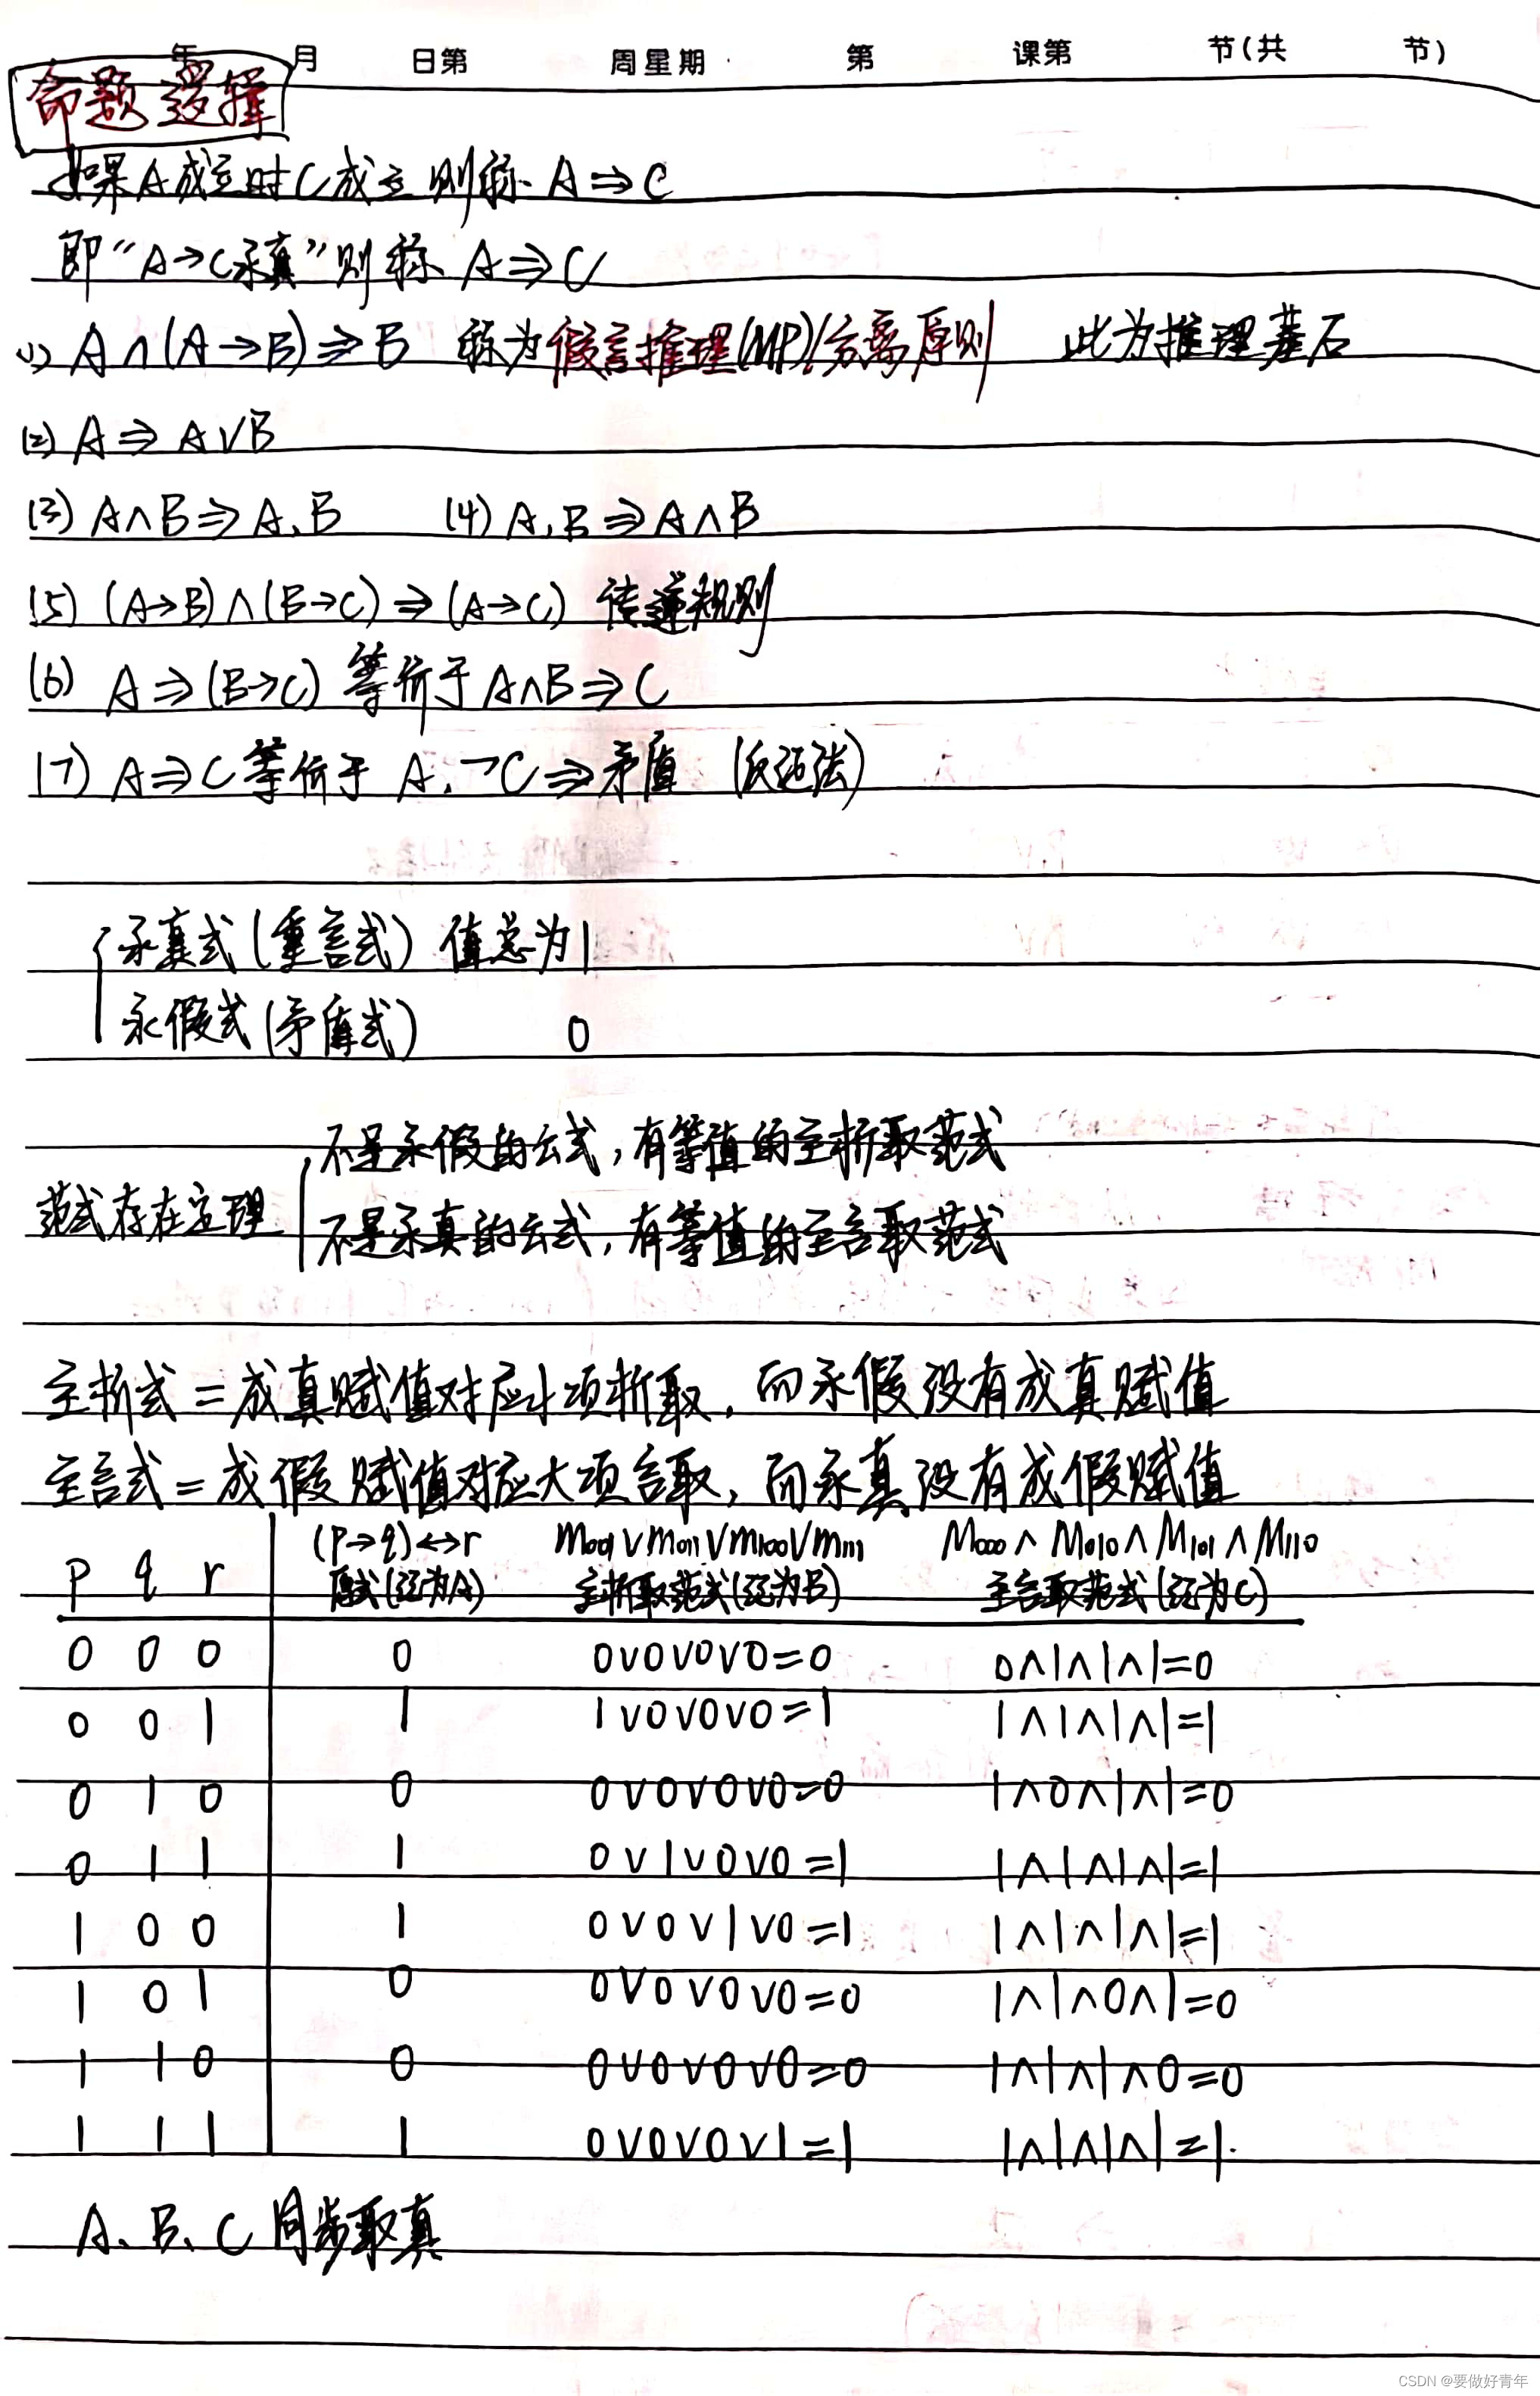 年 月 日第 周星期 第 课第 节(共 节)
命题逻辑
如果A成立时C成立则称 A⇒C
即“A→C永真”则称 A⇒C
(1) A∧(A→B)⇒B 称为假言推理(MP)/分离原则 此为推理基石
(2) A⇒A∨B
(3) A∧B⇒A、B (4) A,B⇒A∧B
(5) (A→B)∧(B→C)⇒(A→C) 传递规则
(6) A⇒(B→C) 等价于 A∧B⇒C
(7) A⇒C等价于 A,¬C⇒矛盾 (反证法)
永真式(重言式) 值总为1
永假式(矛盾式) 0
不是永假的公式,有等值的主析取范式
范式存在定理
不是永真的公式,有等值的主合取范式
主析式=成真赋值对应小项析取,而永假没有成真赋值
主合式=成假赋值对应大项合取,而永真没有成假赋值
(p→q)↔r m001∨m011∨m100∨m111 M000∧M010∧M101∧M110
p q r 原式(记为A) 主析取范式(记为B) 主合取范式(记为C)
0 0 0 0 0∨0∨0∨0=0 0∧1∧1∧1=0
0 0 1 1 1∨0∨0∨0=1 1∧1∧1∧1=1
0 1 0 0 0∨0∨0∨0=0 1∧0∧1∧1=0
0 1 1 1 0∨1∨0∨0=1 1∧1∧1∧1=1
1 0 0 1 0∨0∨1∨0=1 1∧1∧1∧1=1
1 0 1 0 0∨0∨0∨0=0 1∧1∧0∧1=0
1 1 0 0 0∨0∨0∨0=0 1∧1∧1∧0=0
1 1 1 1 0∨0∨0∨1=1 1∧1∧1∧1=1.
A、B、C同步取真
CSDN @要做好青年